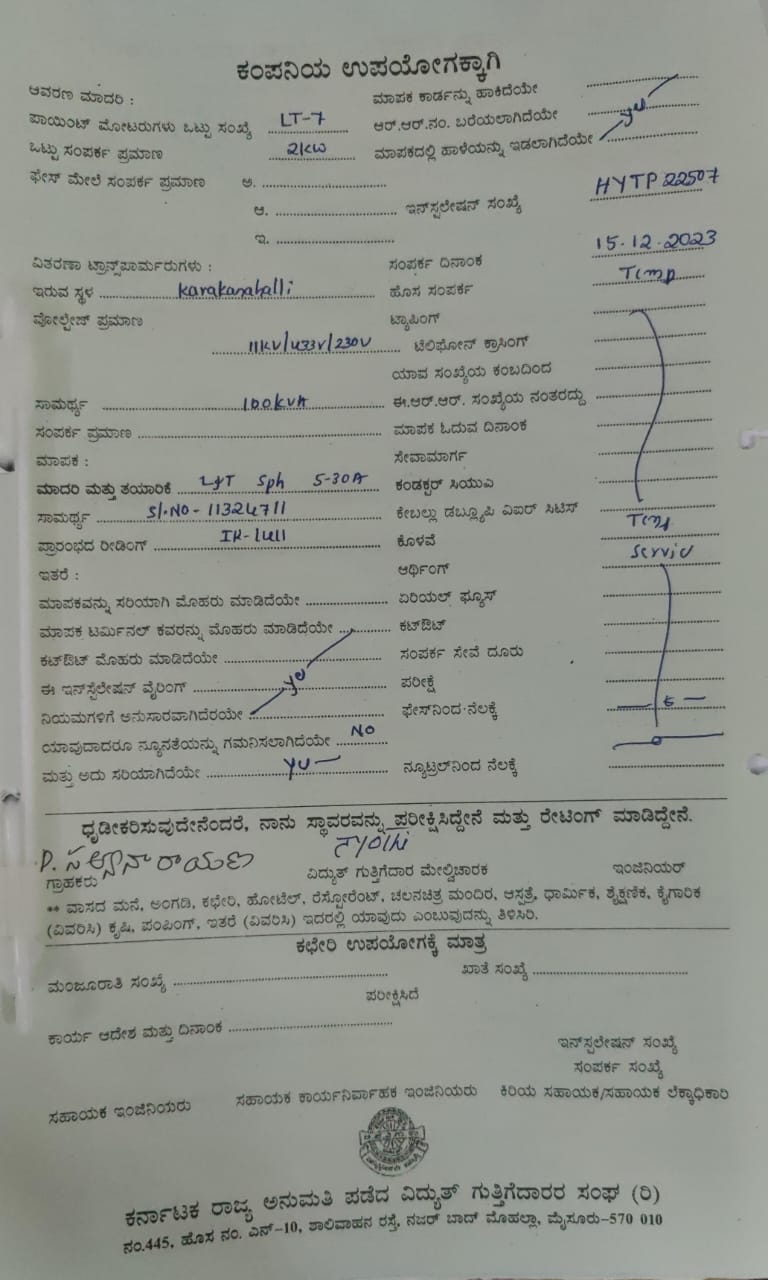 ಕಂಪನಿಯ ಉಪಯೋಗಕ್ಕಾಗಿ
ಆವರಣ ಮಾದರಿ : ಮಾಪಕ ಕಾರ್ಡನ್ನು ಹಾಕಿದೆಯೇ
ಪಾಯಿಂಟ್ ಮೋಟರುಗಳು ಒಟ್ಟು ಸಂಖ್ಯೆ LT-7 ಆರ್.ಆರ್.ನಂ. ಬರೆಯಲಾಗಿದೆಯೇ
ಒಟ್ಟು ಸಂಪರ್ಕ ಪ್ರಮಾಣ 2KW ಮಾಪಕದಲ್ಲಿ ಹಾಳೆಯನ್ನು ಇಡಲಾಗಿದೆಯೇ
ಫೇಸ್ ಮೇಲೆ ಸಂಪರ್ಕ ಪ್ರಮಾಣ ಅ.
ಆ. ಇನ್‌ಸ್ಟಲೇಷನ್ ಸಂಖ್ಯೆ HYTP 22507
ಇ.
ವಿತರಣಾ ಟ್ರಾನ್ಸ್‌ಫಾರ್ಮರುಗಳು : ಸಂಪರ್ಕ ದಿನಾಂಕ 15.12.2023
ಇರುವ ಸ್ಥಳ Karakanahalli ಹೊಸ ಸಂಪರ್ಕ Temp
ವೋಲ್ಟೇಜ್ ಪ್ರಮಾಣ ಟ್ಯಾಪಿಂಗ್
11KV/433V/230V ಟೆಲಿಫೋನ್ ಕ್ರಾಸಿಂಗ್
ಯಾವ ಸಂಖ್ಯೆಯ ಕಂಬದಿಂದ
ಸಾಮರ್ಥ್ಯ 100KVA ಈ.ಆರ್.ಆರ್. ಸಂಖ್ಯೆಯ ನಂತರದ್ದು
ಸಂಪರ್ಕ ಪ್ರಮಾಣ ಮಾಪಕ ಓದುವ ದಿನಾಂಕ
ಮಾಪಕ : ಸೇವಾಮಾರ್ಗ
ಮಾದರಿ ಮತ್ತು ತಯಾರಿಕೆ L&T Sph 5-30A ಕಂಡಕ್ಟರ್ ಸಿಯುಎ
ಸಾಮರ್ಥ್ಯ Sl.NO-11324711 ಕೇಬಲ್ಲು ಡಬ್ಲ್ಯೂಪಿ ವಿಐರ್ ಸಿಟಿಸ್
ಪ್ರಾರಂಭದ ರೀಡಿಂಗ್ ಕೊಳವೆ Temp
ಇತರೆ : ಆರ್ಥಿಂಗ್ Service
ಮಾಪಕವನ್ನು ಸರಿಯಾಗಿ ಮೊಹರು ಮಾಡಿದೆಯೇ ಏರಿಯಲ್ ಫ್ಯೂಸ್
ಮಾಪಕ ಟರ್ಮಿನಲ್ ಕವರನ್ನು ಮೊಹರು ಮಾಡಿದೆಯೇ ಕಟ್‌ಔಟ್
ಕಟ್‌ಔಟ್ ಮೊಹರು ಮಾಡಿದೆಯೇ ಸಂಪರ್ಕ ಸೇವೆ ದೂರು
ಈ ಇನ್‌ಸ್ಟೆಲೇಷನ್ ವೈರಿಂಗ್ ಪರೀಕ್ಷೆ
ನಿಯಮಗಳಿಗೆ ಅನುಸಾರವಾಗಿದೆರಯೇ ಫೇಸ್‌ನಿಂದ ನೆಲಕ್ಕೆ
ಯಾವುದಾದರೂ ನ್ಯೂನತೆಯನ್ನು ಗಮನಿಸಲಾಗಿದೆಯೇ NO
ಮತ್ತು ಅದು ಸರಿಯಾಗಿದೆಯೇ ನ್ಯೂಟ್ರಲ್‌ನಿಂದ ನೆಲಕ್ಕೆ
ಧೃಡೀಕರಿಸುವುದೇನೆಂದರೆ, ನಾನು ಸ್ಥಾವರವನ್ನು ಪರೀಕ್ಷಿಸಿದ್ದೇನೆ ಮತ್ತು ರೇಟಿಂಗ್ ಮಾಡಿದ್ದೇನೆ.
ಗ್ರಾಹಕರು ವಿದ್ಯುತ್ ಗುತ್ತಿಗೆದಾರ ಮೇಲ್ವಿಚಾರಕ ಇಂಜಿನಿಯರ್
** ವಾಸದ ಮನೆ, ಅಂಗಡಿ, ಕಛೇರಿ, ಹೋಟೆಲ್, ರೆಸ್ಟೋರೆಂಟ್, ಚಲನಚಿತ್ರ ಮಂದಿರ, ಆಸ್ಪತ್ರೆ, ಧಾರ್ಮಿಕ, ಶೈಕ್ಷಣಿಕ, ಕೈಗಾರಿಕ
(ವಿವರಿಸಿ) ಕೃಷಿ, ಪಂಪಿಂಗ್, ಇತರೆ (ವಿವರಿಸಿ) ಇದರಲ್ಲಿ ಯಾವುದು ಎಂಬುವುದನ್ನು ತಿಳಿಸಿರಿ.
ಕಛೇರಿ ಉಪಯೋಗಕ್ಕೆ ಮಾತ್ರ
ಮಂಜೂರಾತಿ ಸಂಖ್ಯೆ ಖಾತೆ ಸಂಖ್ಯೆ
ಪರೀಕ್ಷಿಸಿದೆ
ಕಾರ್ಯ ಆದೇಶ ಮತ್ತು ದಿನಾಂಕ
ಇನ್‌ಸ್ಟಲೇಷನ್ ಸಂಖ್ಯೆ
ಸಂಪರ್ಕ ಸಂಖ್ಯೆ
ಸಹಾಯಕ ಇಂಜಿನಿಯರು ಸಹಾಯಕ ಕಾರ್ಯನಿರ್ವಾಹಕ ಇಂಜಿನಿಯರು ಕಿರಿಯ ಸಹಾಯಕ/ಸಹಾಯಕ ಲೆಕ್ಕಾಧಿಕಾರಿ
ಕರ್ನಾಟಕ ರಾಜ್ಯ ಅನುಮತಿ ಪಡೆದ ವಿದ್ಯುತ್ ಗುತ್ತಿಗೆದಾರರ ಸಂಘ (ರಿ)
ನಂ.445, ಹೊಸ ನಂ. ಎನ್-10, ಶಾಲಿವಾಹನ ರಸ್ತೆ, ನಜರ್ ಬಾದ್ ಮೊಹಲ್ಲಾ, ಮೈಸೂರು-570 010